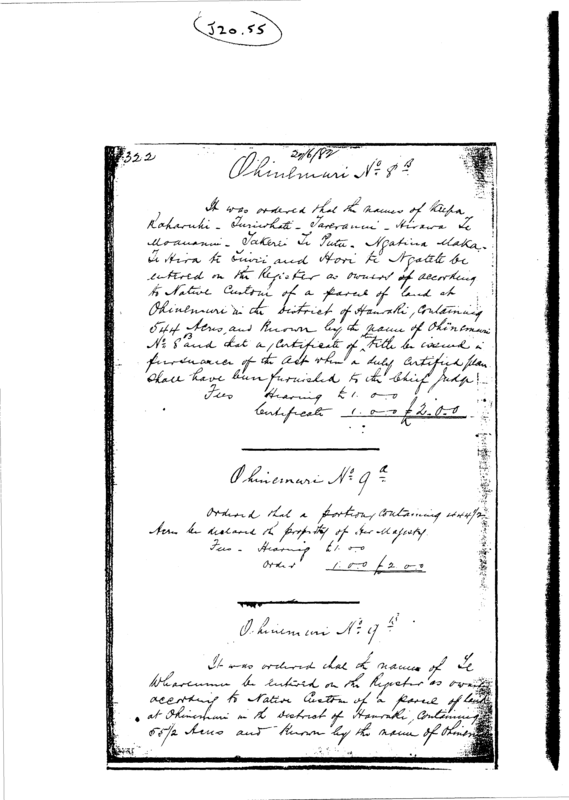 J20.55
322
20/6/82
Ohinemuri No 8 B
It was ordered that the names of Keepa
Raharuhi - Turiwhati - Tareranui - Hirawa Te
Moananui - Takerei Te Putu - Ngatina Maka -
Te Hira te Tuiri and Hori te Ngatete be
entered on the Register as owners of according
to Native Custom of a parcel of land at
Ohinemuri in the District of Hauraki, containing
544 Acres, and known by the name of Ohinemuri
No 8 B and that a certificate of title be issued in
pursuance of the Act when a duly certified plan
shall have been furnished to the Chief Judge.
Fees Hearing £1.0.0
Certificate 1.0.0 £2.0.0
Ohinemuri No 9 a
Ordered that a portion, containing 444 1/2
Acres be declared the property of Her Majesty
Fees - Hearing £1.0.0
Order 1.0.0 £2.0.0
Ohinemuri No 9 B
It was ordered that the names of Te
Wharenui be entered on the Register as owners
according to Native Custom of a parcel of land
at Ohinemuri in the District of Hauraki, containing
55 1/2 Acres and known by the name of Ohinem